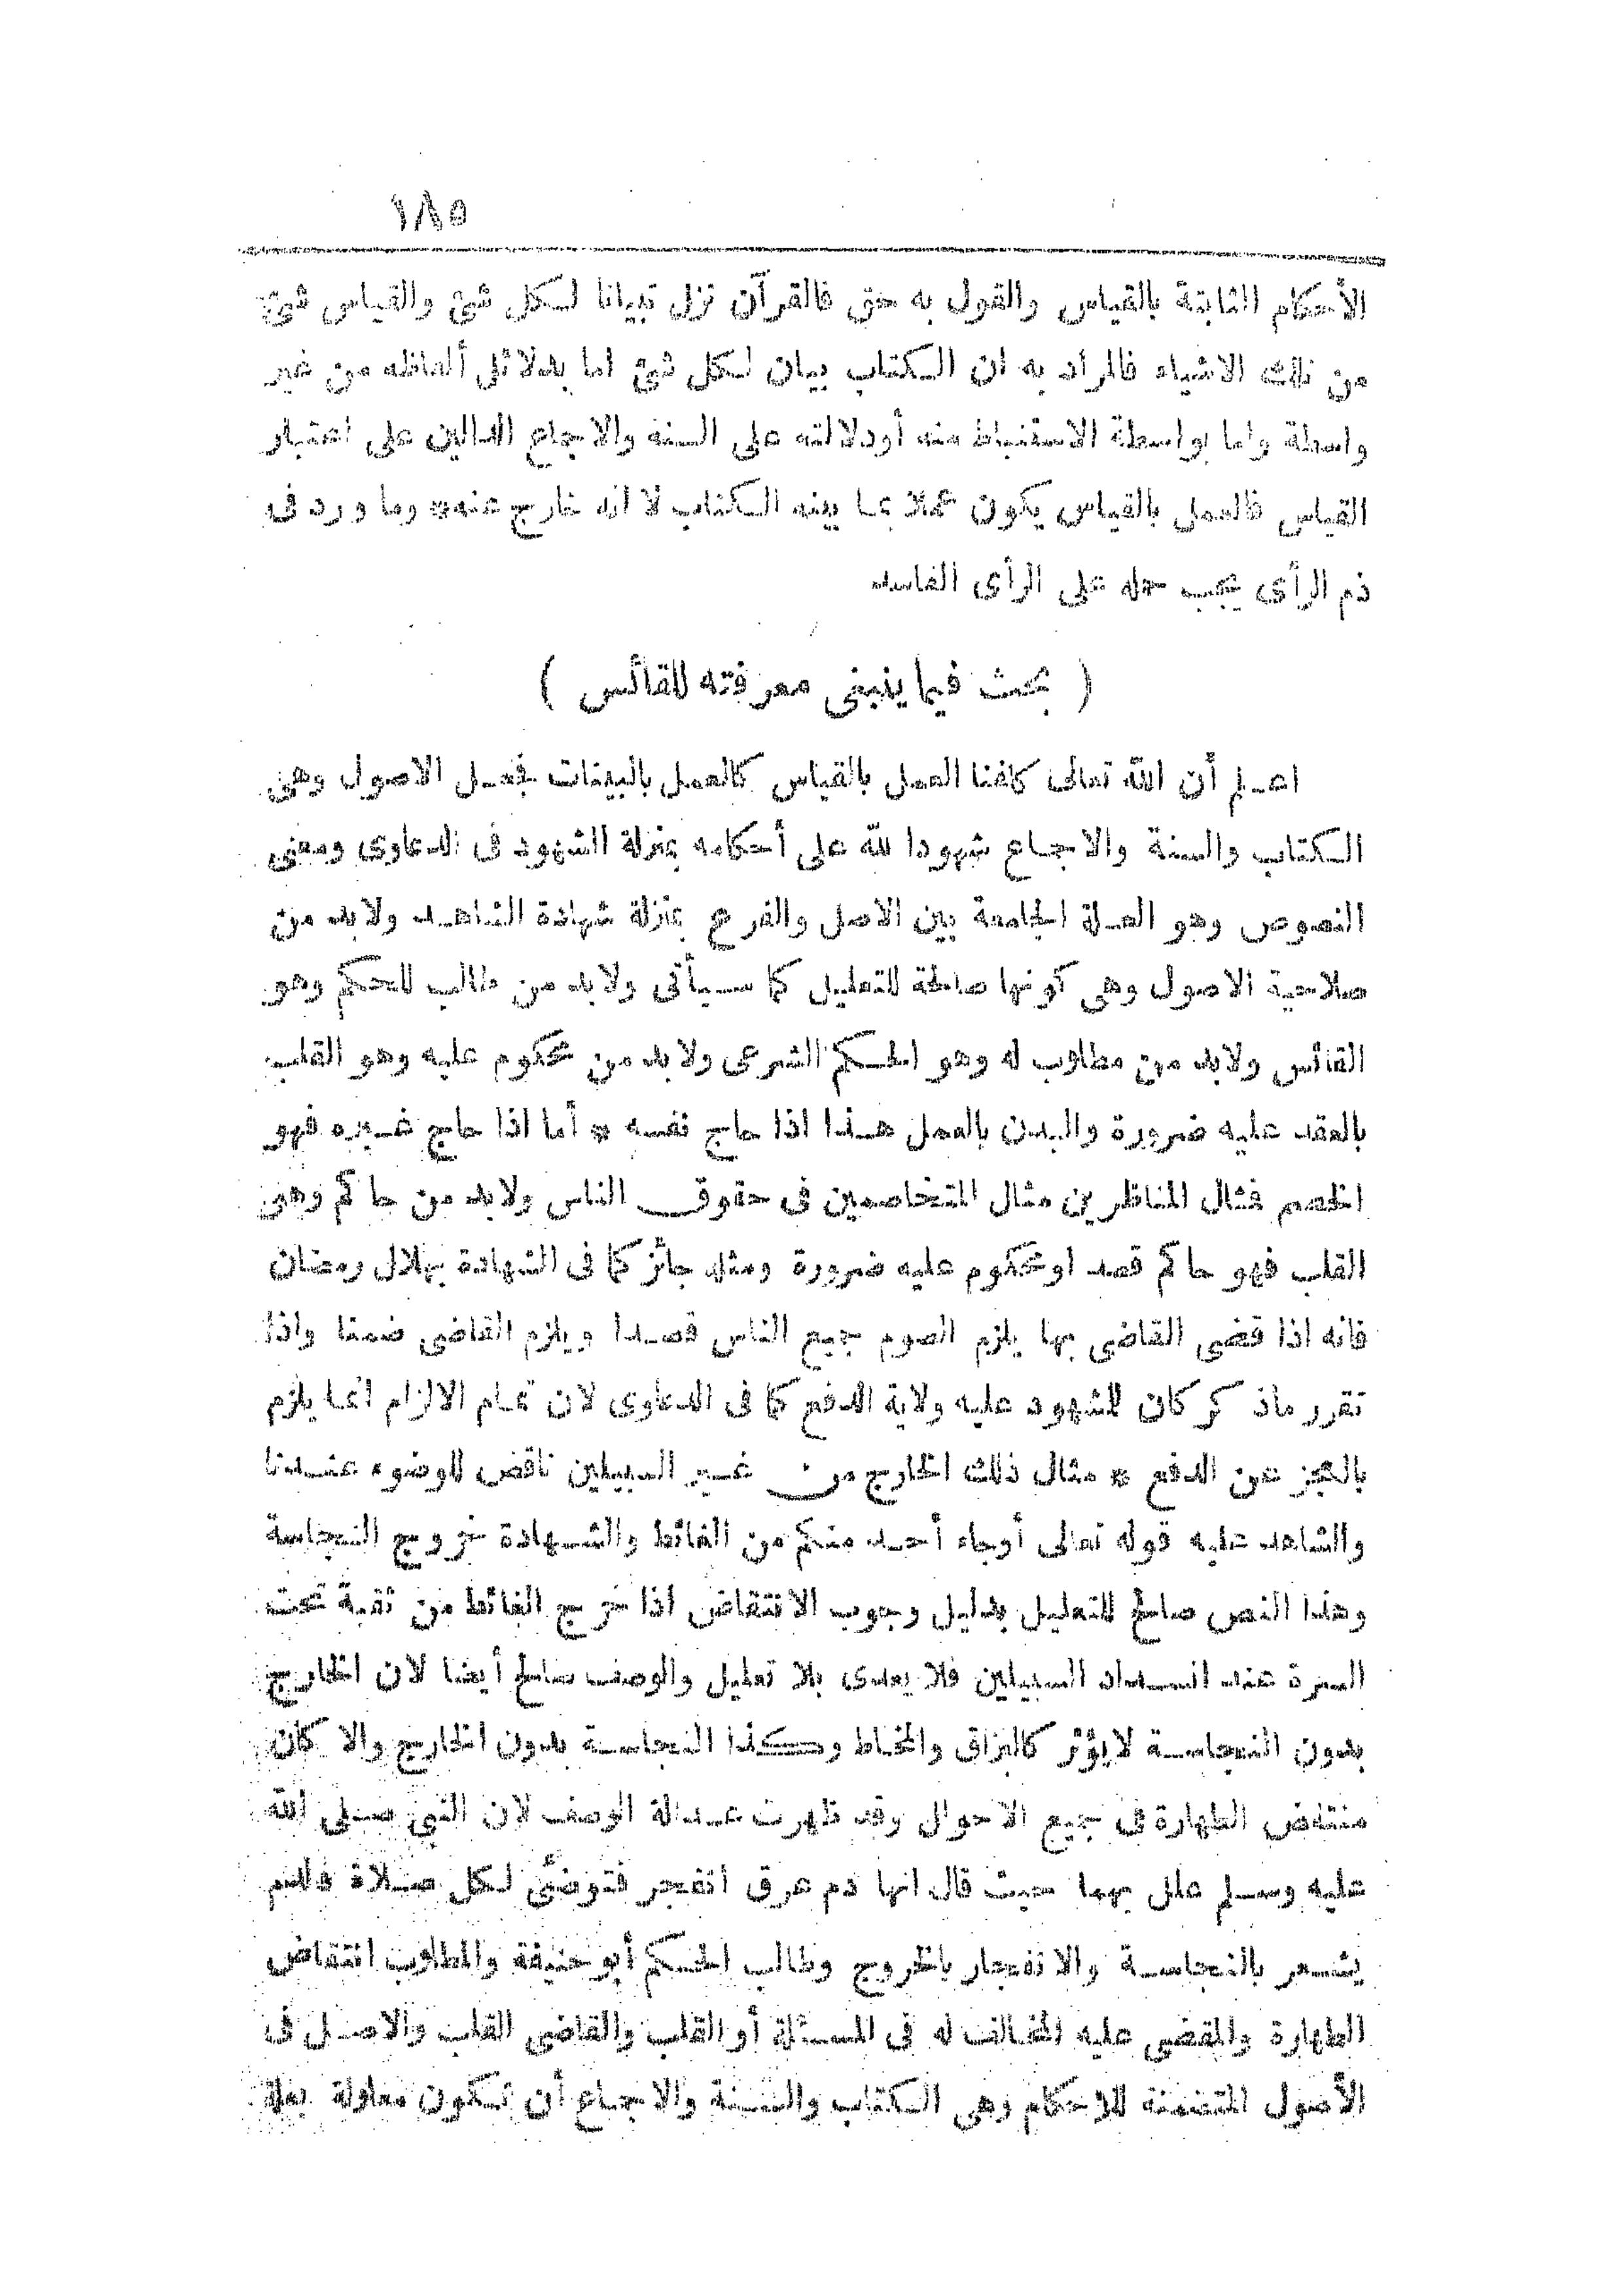 ١٨٥
الأحكام الثابتة بالقياس والقول به حق فالقرآن نزل تبيانا لكل شئ والقياس شئ
من تلك الاشياء فالمراد به ان الكتاب بيان لكل شئ اما بدلائل ألفاظه من غير
واسطة واما بواسطة الاستنباط منه أودلالته على السنة والاجماع الدالين على اعتبار
القياس فالعمل بالقياس يكون عملا بما بينه الكتاب لا انه خارج عنه * وما ورد فى
ذم الرأى يجب حمله على الرأى الفاسد
( بحث فيما ينبغى معرفته للقائس )
اعلم أن الله تعالى كلفنا العمل بالقياس كالعمل بالبينات فجعل الاصول وهى
الكتاب والسنة والاجماع شهودا لله على أحكامه بمنزلة الشهود فى الدعاوى ومعنى
النصوص وهو العلة الجامعة بين الاصل والفرع بمنزلة شهادة الشاهد ولابد من
صلاحية الاصول وهى كونها صالحة للتعليل كما سيأتى ولابد من طالب للحكم وهو
القائس ولابد من مطلوب له وهو الحكم الشرعى ولابد من محكوم عليه وهو القلب
بالعقد عليه ضرورة والبدن بالعمل هذا اذا حاج نفسه * أما اذا حاج غيره فهو
الخصم فمثال المناظرين مثال المتخاصمين فى حقوق الناس ولابد من حاكم وهو
القلب فهو حاكم قصد اومحكوم عليه ضرورة ومثله جائز كما فى الشهادة بهلال رمضان
فانه اذا قضى القاضى بها يلزم الصوم جميع الناس قصدا ويلزم القاضى ضمنا واذا
تقرر ماذكر كان للشهود عليه ولاية الدفع كما فى الدعاوى لان تمام الالزام انما يلزم
بالعجز عن الدفع * مثال ذلك الخارج من غير السبيلين ناقض للوضوء عندنا
والشاهد عليه قوله تعالى أوجاء أحد منكم من الغائط والشهادة خروج النجاسة
وهذا النص صالح للتعليل بدليل وجوب الانتقاض اذا خرج الغائط من ثقبة تحت
السرة عند انسداد السبيلين فلا يعدى بلا تعليل والوصف صالح أيضا لان الخارج
بدون النجاسة لايؤثر كالبزاق والمخاط وكذا النجاسة بدون الخارج والا كان
منتقض الطهارة فى جميع الاحوال وقد ظهرت عدالة الوصف لان النبي صلى الله
عليه وسلم علل بهما حيث قال انها دم عرق انفجر فتوضئى لكل صلاة فالدم
يشعر بالنجاسة والانفجار بالخروج وطالب الحكم أبوحنيفة والمطلوب انتقاض
الطهارة والمقضى عليه المخالف له فى المسئلة أو القلب والقاضى القلب والاصل فى
الأصول المتضمنة للاحكام وهى الكتاب والسنة والاجماع أن تكون معلولة بعلة